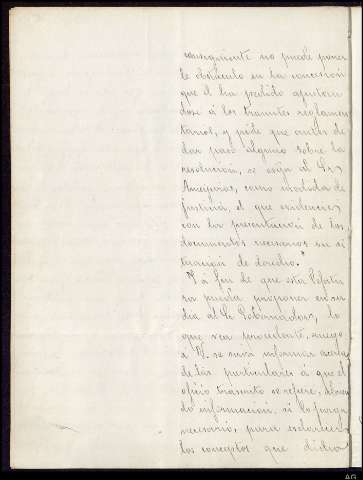 consiguiente no puede poner
le obstáculo en la concesión
que él ha pedido ajustan
dose á los trámites reglamen
tarios, y pide que antes de
dar paso alguno sobre la
resolución, se exija al Sr.
Ameyoras, como medida de
justicia, el que evidencie
con la presentación de los
documentos necesarios su si
tuación de derecho."
Y á fin de que esta Jefatu
ra pueda proponer en su
dia al Sr. Gobernador, lo
que sea procedente, ruego
á V. se sirva informar acerca
de los particulares á que el
oficio trascrito se refiere,
do información, si lo juzga
necesario, para esclarecer
los conceptos que dicho
AG